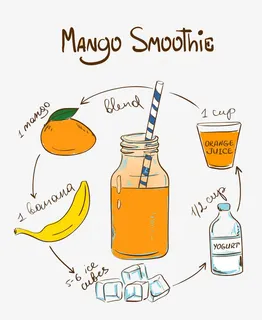 Mango Smoothie
blend
1 mango
1 cup
ORANGE
JUICE
1 banana
1/2 cup
YOGURT
5-6 ice
cubes